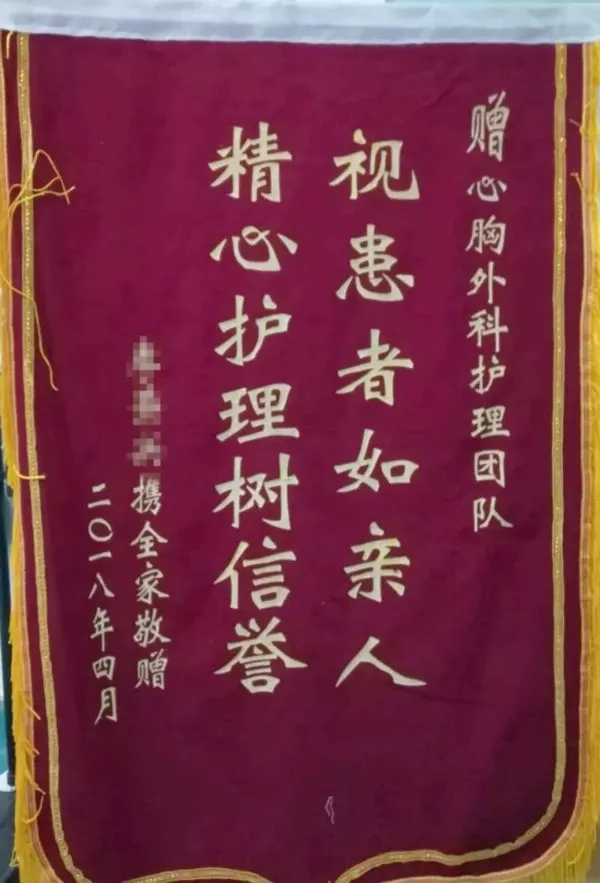 赠心胸外科护理团队
视患者如亲人
精心护理树信誉
携全家敬赠
二〇一八年四月